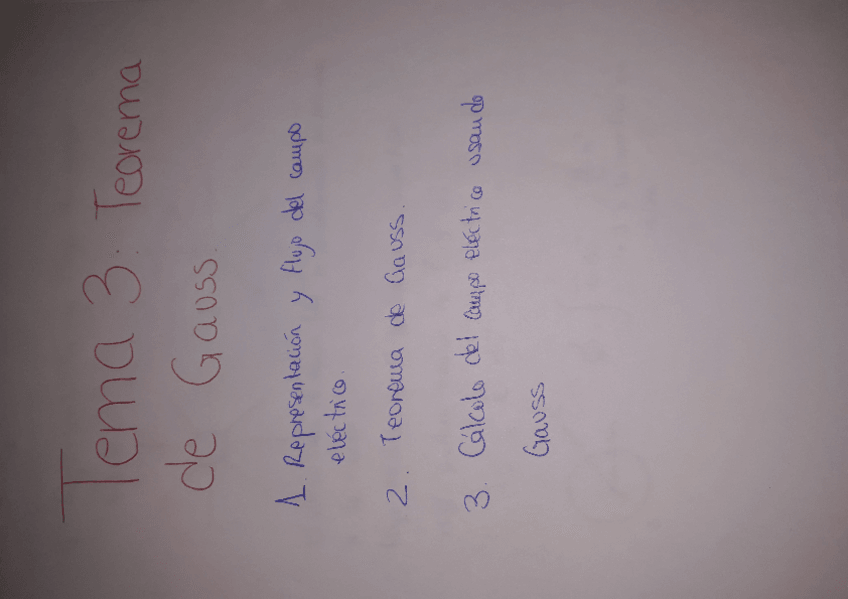 Tema 3: Teorema
de Gauss.
1. Representación y flujo del campo
eléctrico.
2. Teorema de Gauss.
3. Cálculo del campo eléctrico usando
Gauss